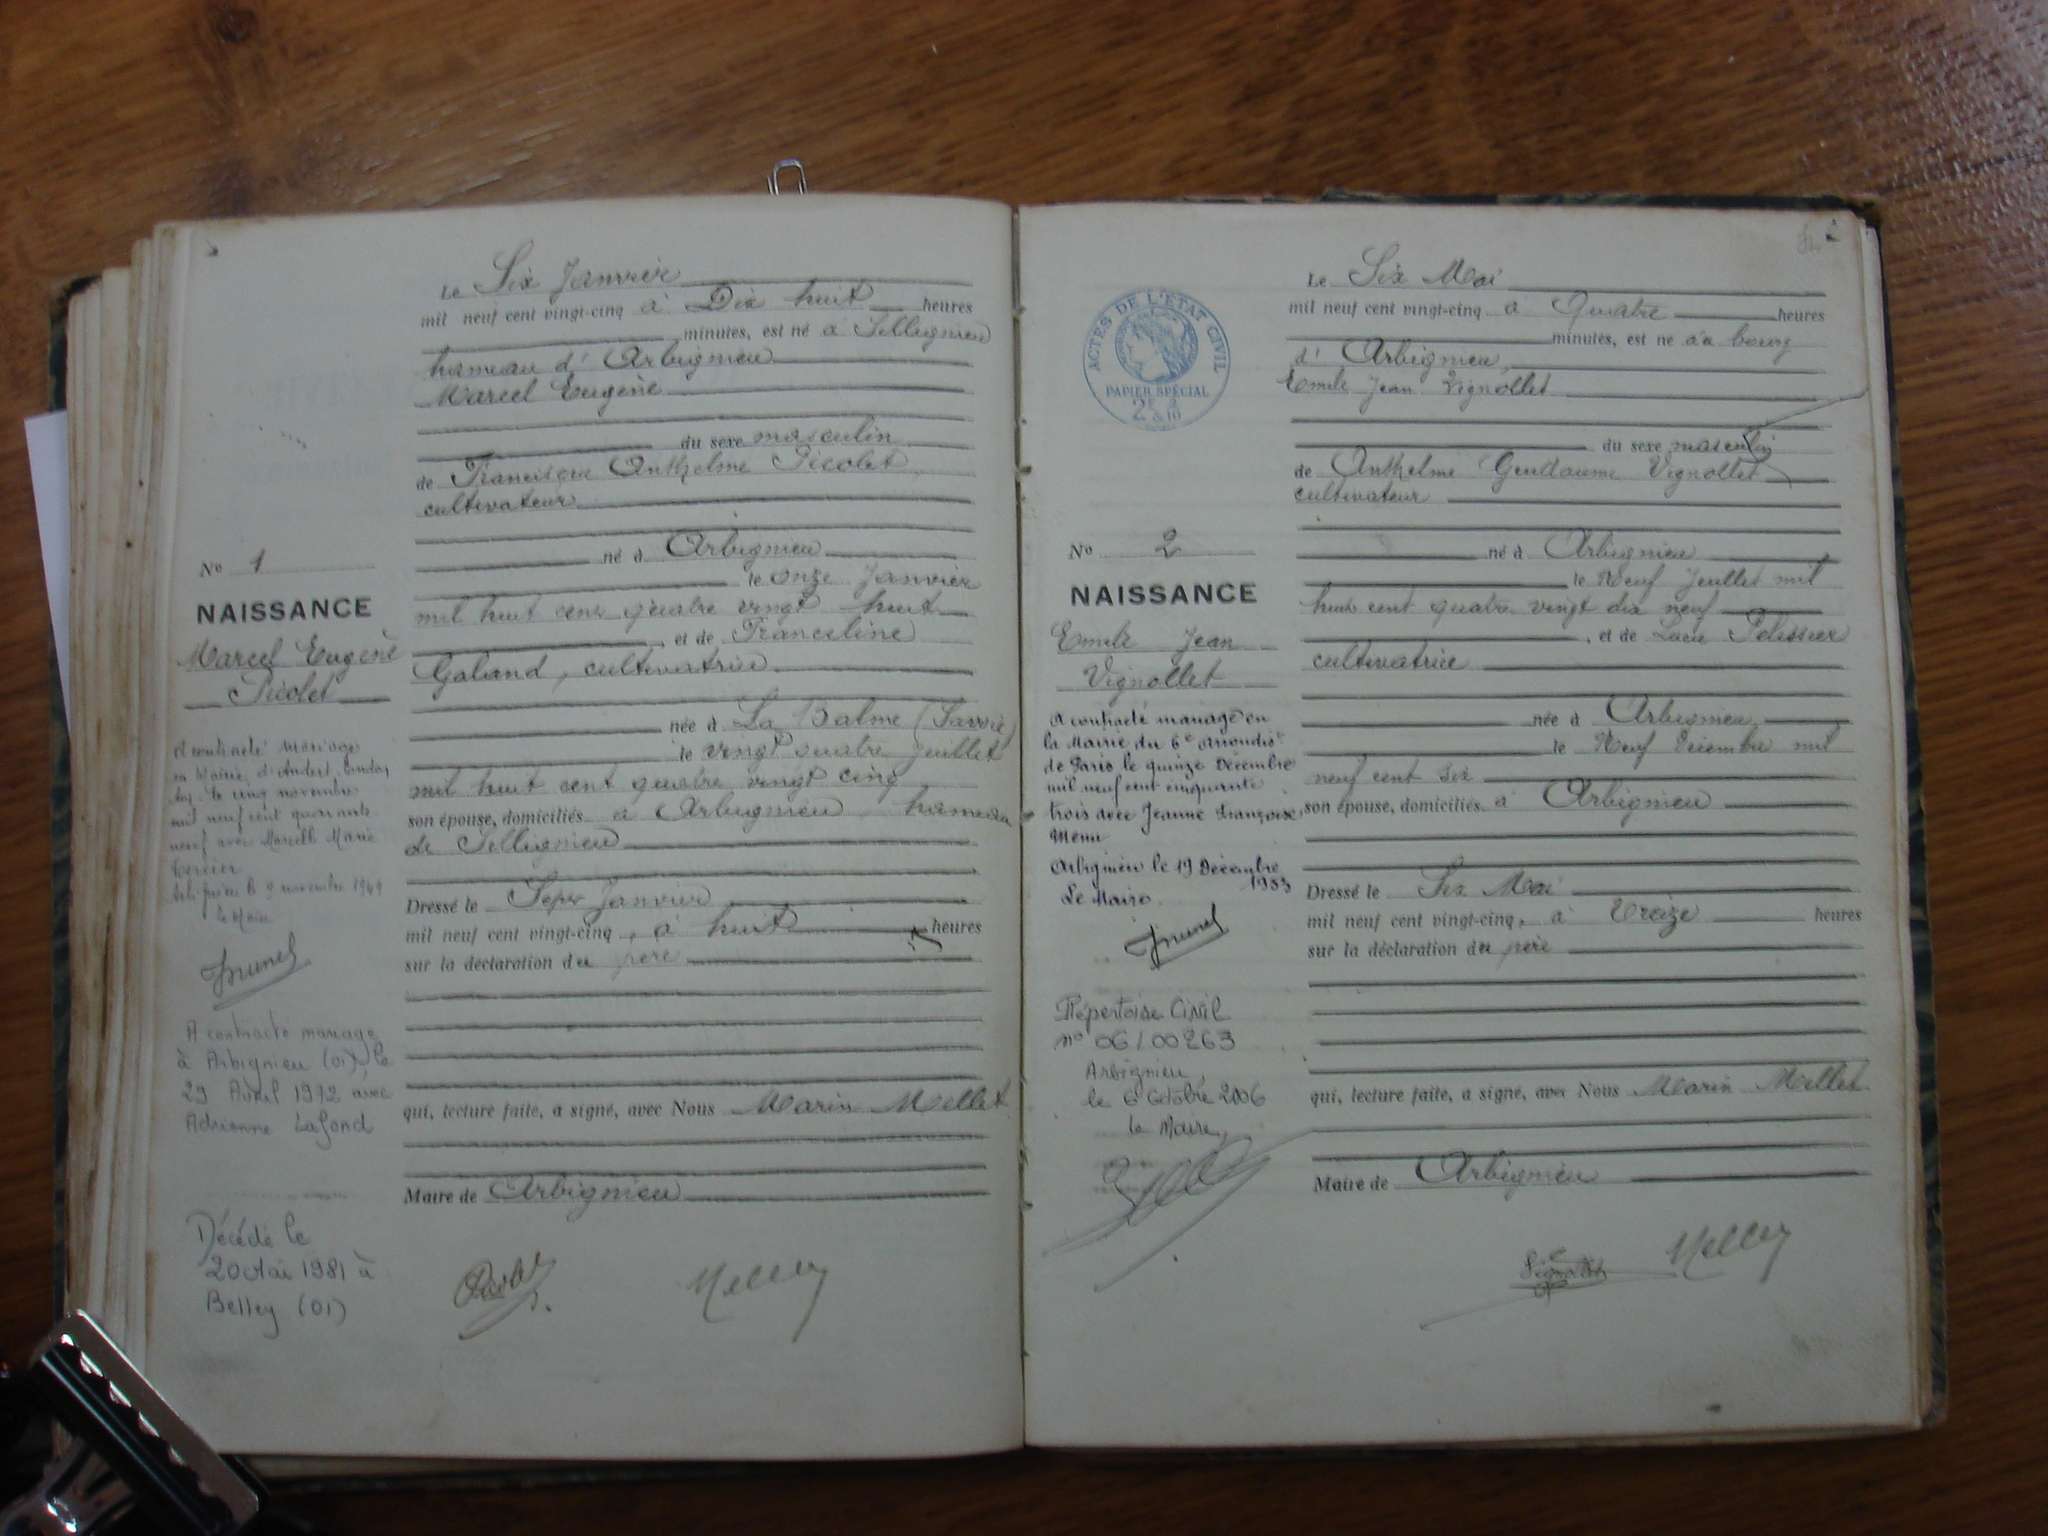 Le Six Janvier
mil neuf cent vingt-cinq à Dix huit heures
minutes, est né à Sillignieu
hameau d'Arbignieu
Marcel Eugène
du sexe masculin
de Francisque Anthelme Picolet
cultivateur
né à Arbignieu
le onze Janvier
mil huit cent quatre vingt huit
, et de Franceline
Galland, cultivatrice
née à La Balme (Savoie)
le vingt quatre juillet
mil huit cent quatre vingt cinq
son épouse, domiciliés à Arbignieu hameau
de Sillignieu
Dressé le Sept Janvier
mil neuf cent vingt-cinq, à huit heures
sur la déclaration du père
qui, lecture faite, a signé, avec Nous Marin Mellet
Maire de Arbignieu
Picolet
Mellet
No 1
NAISSANCE
Marcel Eugène
Picolet
A contracté mariage
en Mairie d'Andert Condon
le cinq novembre
mil neuf cent quarante
neuf avec Marcelle Marie
Tercier
le 9 novembre 1949
Le Maire
Brunel
A contracté mariage
à Arbignieu (01), le
29 Avril 1972 avec
Adrienne Lafond
Décédé le
20 Mai 1981 à
Belley (01)
Le Six Mai
mil neuf cent vingt-cinq à Quatre heures
minutes, est né au bourg
d'Arbignieu,
Emile Jean Vignollet
du sexe masculin
de Anthelme Guillaume Vignollet
cultivateur
né à Arbignieu
le Neuf Juillet mil
huit cent quatre vingt dix neuf
, et de Lucie Pelissier
cultivatrice
née à Arbignieu
le Neuf Décembre mil
neuf cent six
son épouse, domiciliés à Arbignieu
Dressé le Six Mai
mil neuf cent vingt-cinq, à Treize heures
sur la déclaration du père
qui, lecture faite, a signé, avec Nous Marin Mellet
Maire de Arbignieu
Vignollet
Mellet
ACTES DE L'ETAT CIVIL
PAPIER SPÉCIAL
No 2
NAISSANCE
Emile Jean
Vignollet
A contracté mariage en
la Mairie du 6e arrondist
de Paris le quinze Décembre
mil neuf cent cinquante
trois avec Jeanne Françoise
Menu
Arbignieu le 19 Décembre
1953
Le Maire.
Brunel
Répertoire Civil
n° 06/00263
Arbignieu,
le 6 Octobre 2006
le Maire,